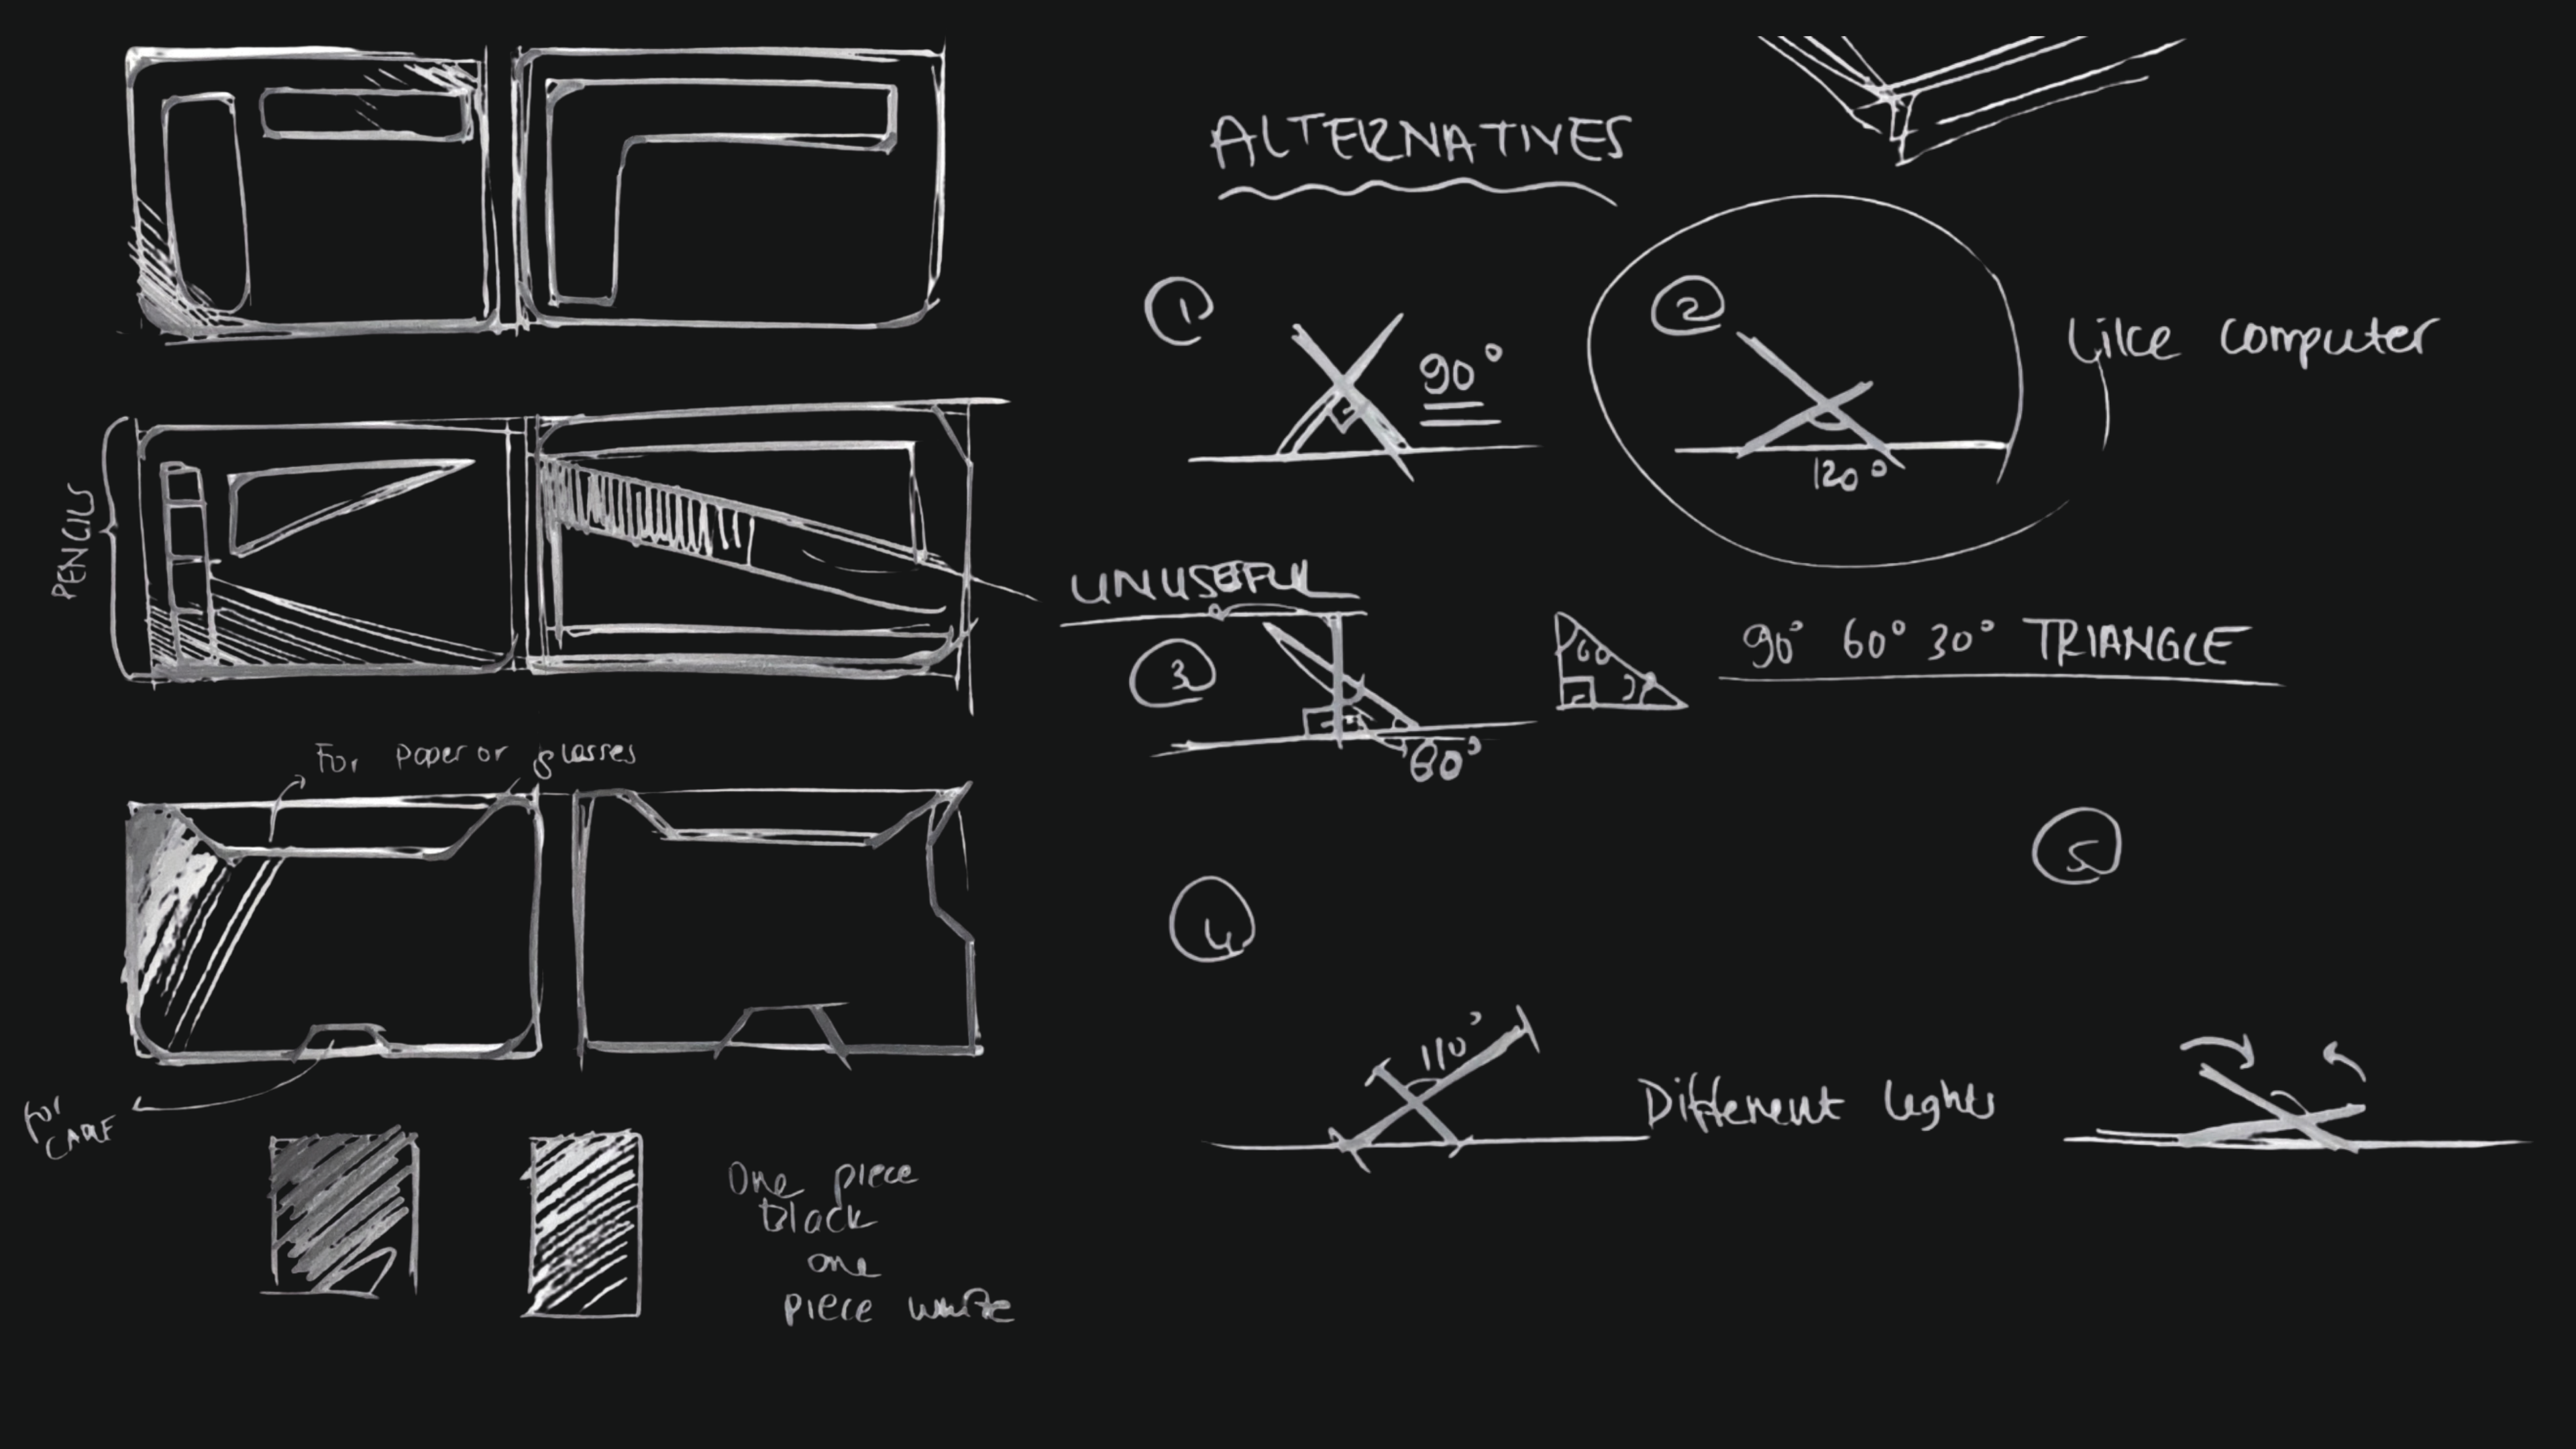 ALTERNATIVES
1
90°
2
120°
Like computer
PENCILS
UNUSEFUL
3
60°
60
90° 60° 30° TRIANGLE
For paper or glasses
4
5
110°
Different lights
For
CABLE
One piece
black
one
piece white